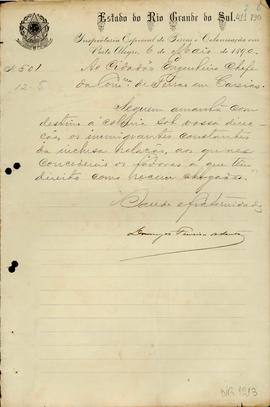 Estado do Rio Grande do Sul.
Inspectoria Especial de Terras e Colonisação em
Porto Alegre, 6 de Maio de 1890.
Nº 501
Ao Cidadão Engenheiro Chefe
da Com. de Terras em Caxias
12-5
Seguem amanhã com
destino á colonia sob vossa direc-
ção, os immigrantes constantes
da inclusa relação, aos quaes
concedereis os favores a que têm
direito como recem chegados.
Saude e fraternidade